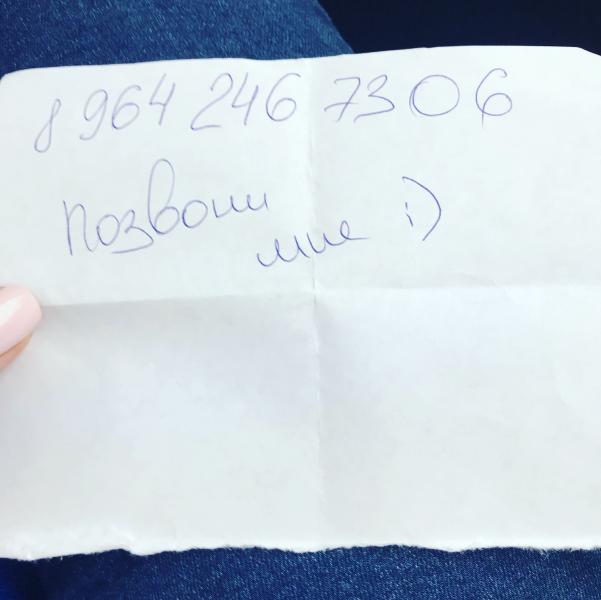 8 964 246 7306
Позвони
мне :)